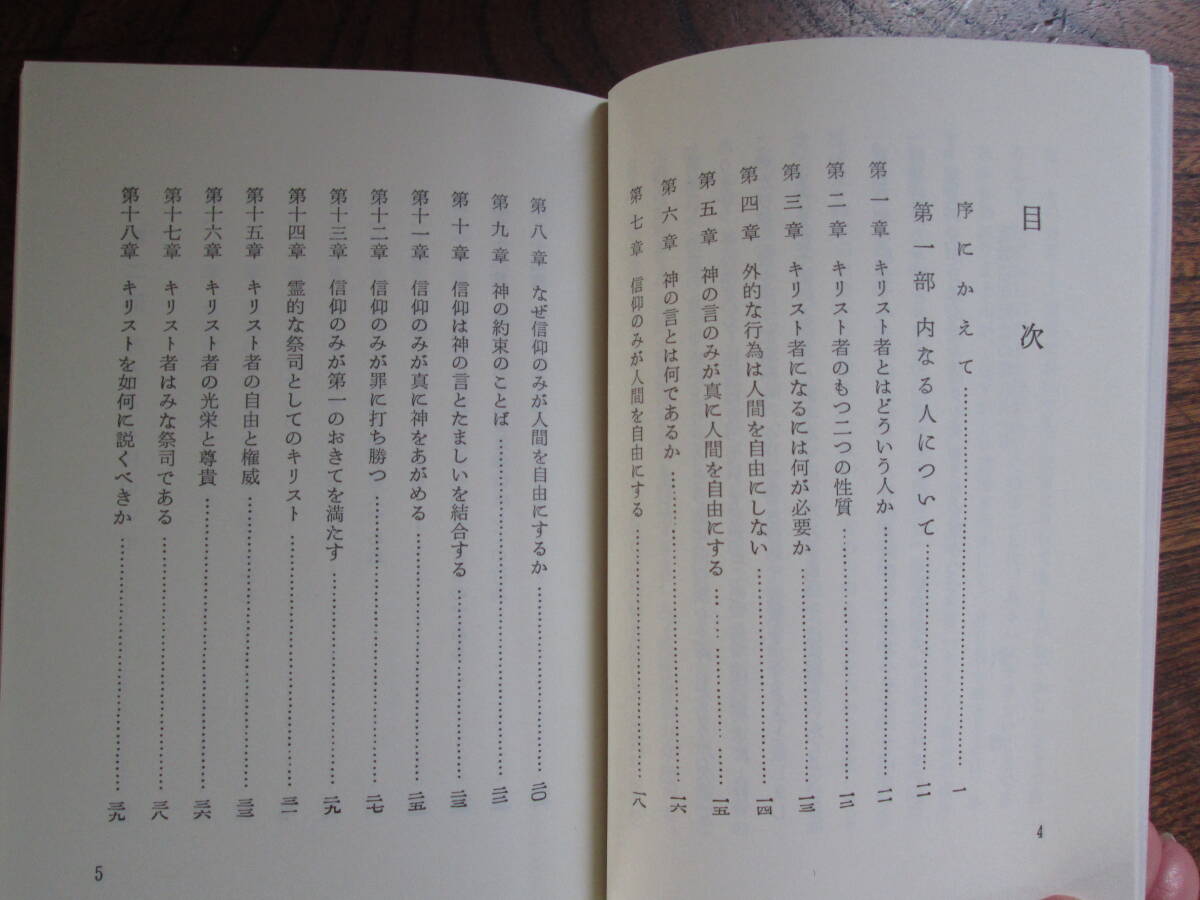 目次
序にかえて……………一
第一部 内なる人について……………一一
第一章 キリスト者とはどういう人か……………一一
第二章 キリスト者のもつ二つの性質……………一二
第三章 キリスト者になるには何が必要か……………一三
第四章 外的な行為は人間を自由にしない……………一四
第五章 神の言のみが真に人間を自由にする……………一五
第六章 神の言とは何であるか……………一六
第七章 信仰のみが人間を自由にする……………一八
4
第八章 なぜ信仰のみが人間を自由にするか……………二〇
第九章 神の約束のことば……………二二
第十章 信仰は神の言とたましいを結合する……………二三
第十一章 信仰のみが真に神をあがめる……………二五
第十二章 信仰のみが罪に打ち勝つ……………二七
第十三章 信仰のみが第一のおきてを満たす……………二九
第十四章 霊的な祭司としてのキリスト……………三一
第十五章 キリスト者の自由と権威……………三三
第十六章 キリスト者の光栄と尊貴……………三六
第十七章 キリスト者はみな祭司である……………三八
第十八章 キリストを如何に説くべきか……………三九
5